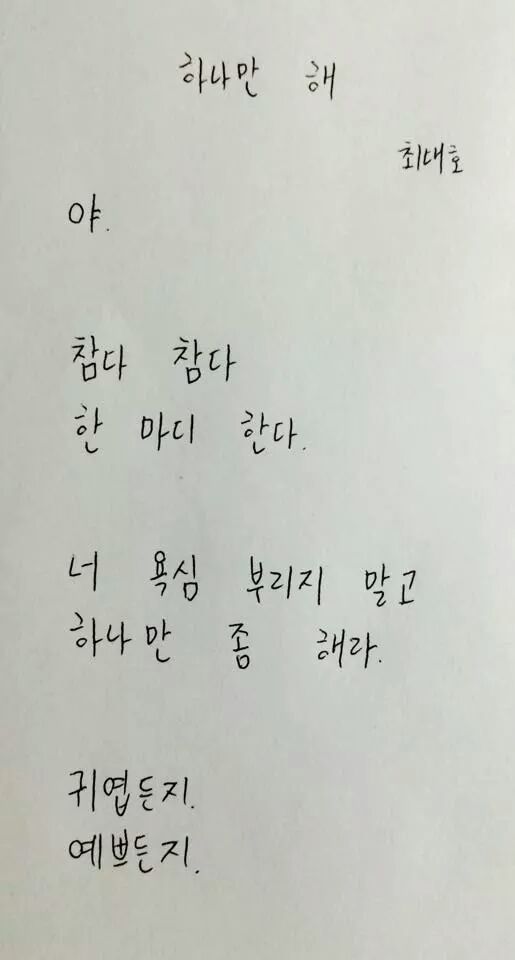 하나만 해
최대호
야.
참다 참다
한 마디 한다.
너 욕심 부리지 말고
하나만 좀 해라.
귀엽든지.
예쁘든지.